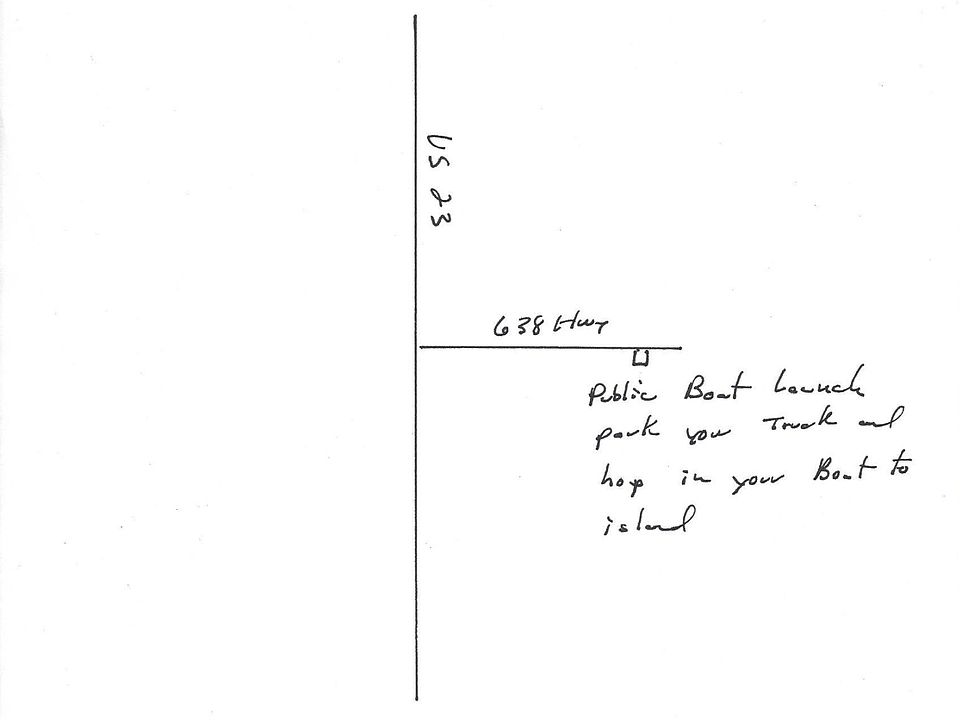 US 23
638 Hwy
Public Boat Launch
park you Truck and
hop in your Boat to
island